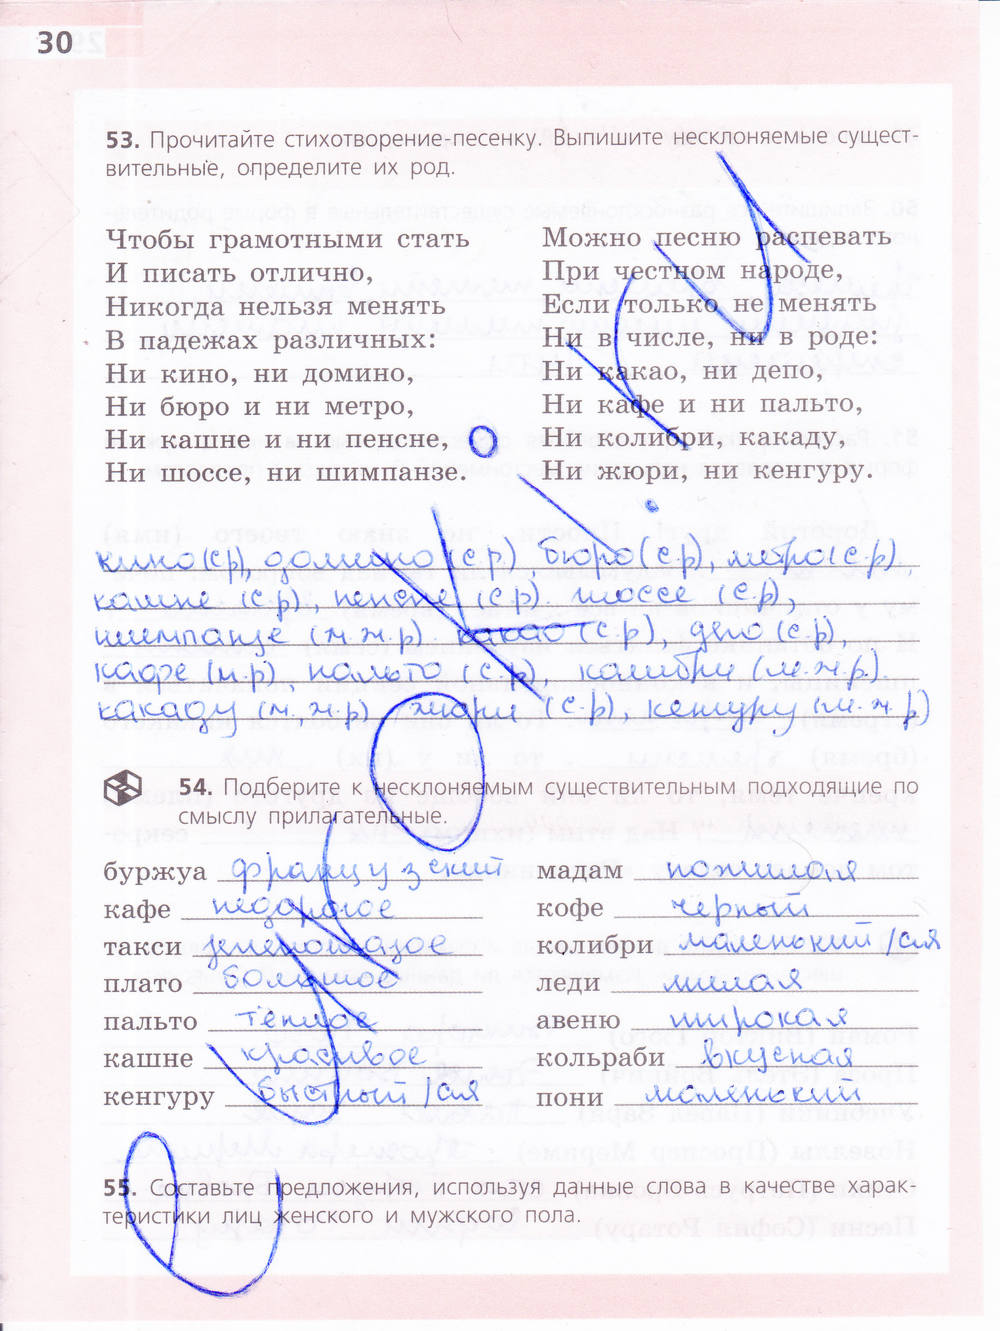 30
53. Прочитайте стихотворение-песенку. Выпишите несклоняемые сущест-
вительные, определите их род.
Чтобы грамотными стать
И писать отлично,
Никогда нельзя менять
В падежах различных:
Ни кино, ни домино,
Ни бюро и ни метро,
Ни кашне и ни пенсне,
Ни шоссе, ни шимпанзе.
Можно песню распевать
При честном народе,
Если только не менять
Ни в числе, ни в роде:
Ни какао, ни депо,
Ни кафе и ни пальто,
Ни колибри, какаду,
Ни жюри, ни кенгуру.
кино (ср), домино (с.р) бюро (с.р), метро (с.р),
кашне (с.р), пенсне (с.р) шоссе (с.р),
шимпанзе (м.ж.р) какао (с.р), депо (с.р)
кафе (н.р) пальто (с.р), калибри (м.ж.р)
какаду (м,ж,р) жюри (с.р), кенгуру (м.ж.р)
54. Подберите к несклоняемым существительным подходящие по
смыслу прилагательные.
буржуа французский
кафе недорогое
такси
плато большое
пальто тёплое
кашне красивое
кенгуру быстрый/ая
мадам пожилая
кофе черный
колибри маленький/ая
леди милая
авеню широкая
кольраби вкусная
пони маленький
55. Составьте предложения, используя данные слова в качестве харак-
теристики лиц женского и мужского пола.